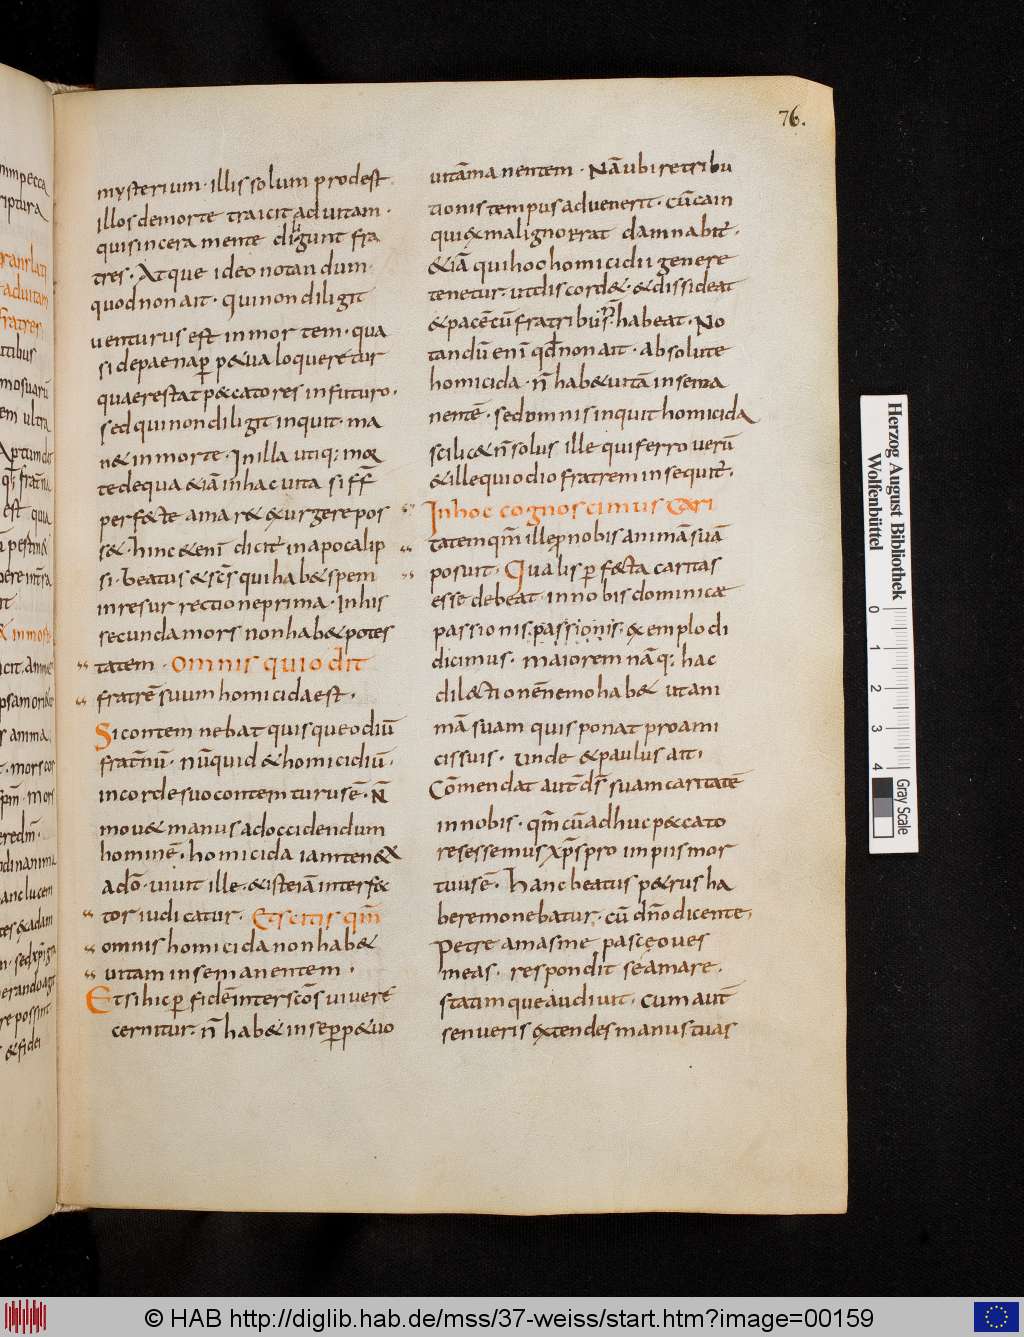 76.
mysterium · illis solum prodest
illos de morte traicit ad uitam ·
qui sincera mente diligunt fra
tres · Atque ideo notandum
quod non ait · qui non diligit
uenturus est in mortem · qua
si de paena p̱ p&ua loqueretur
quae restat p&catores in futuro ·
sed qui non diligit inquit · ma
n& in morte · In illa utiq; mor
te de qua &iā in hac uita si ff̄
perf&te amar& exurgere pos
s& · hinc & enī dicit̄ in apocalip
si · beatus & sc̄s qui hab& spem
in resurrectione prima · In his
secunda mors non hab& potes
tatem · Omnis qui odit
fratrē suum homicida est ·
Si contemnebat quisque odiū
frat̄nū · nūquid & homicidiū ·
in corde suo contempturus ē · N̄
mou& manus ad occidendum
hominē · homicida iam ten&
a dō · uiuit ille · & iste iā interf&
tor iudicatur · Et scitis qm̄
omnis homicida non hab&
uitam in se manentem ·
Et si hic p̱ fidē inter sc̄os uiuere
cernitur · n̄ hab& in se p̱p&uo
uitā manentem · Nā ubi retribu
tionis tempus aduenerit · cū cain
qui ex maligno erat damnabit̄ ·
&iā qui hoc homicidii genere
tenetur · ut discord& · & dissideat
& pacē cū fratribus n̄ habeat · No
tandū enī qd̄ non ait · absolute
homicida · n̄ hab& uitā in se ma
nentē · sed omnis inquit homicida
scilic& n̄ solus ille qui ferro uerū
& ille qui odio fratrem insequit̄ ·
In hoc cognoscimus cari
tatem qm̄ ille p̱ nobis animā suā
posuit · Qualis p̱f&ta caritas
esse debeat in nobis dominicae
passionis passionis · exemplo di
dicimus · maiorem nāq; hac
dil&tionē nemo hab& ut ani
mā suam quis ponat pro ami
cis suis · unde & paulus ait ·
Cōmendat aut̄ d̄s suam caritatē
in nobis · qm̄ cū adhuc p&cato
res essemus xp̄s pro impiis mor
tuus ē · Hanc beatus p&rus ha
bere monebatur · cū dn̄o dicente ·
Petre amas me pasce oues
meas · respondit se amare ·
statimque audiuit · cum aut̄
senueris extendes manus tuas
Herzog August Bibliothek
Wolfenbüttel
0 1 2 3 4
Gray Scale
© HAB http://diglib.hab.de/mss/37-weiss/start.htm?image=00159